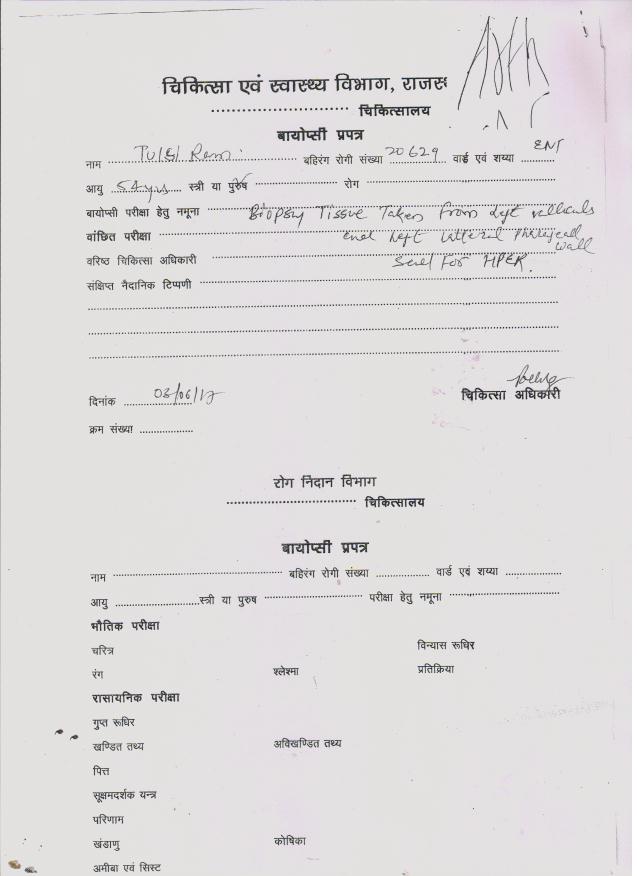 चिकित्सा एवं स्वास्थ्य विभाग, राजस्
चिकित्सालय
बायोप्सी प्रपत्र
नाम Tulsi Ram बहिरंग रोगी संख्या 20629 वार्ड एवं शय्या ENT
आयु 54 yrs स्त्री या पुरुष रोग
बायोप्सी परीक्षा हेतु नमूना Biopsy Tissue Taken From Left
वांछित परीक्षा Left wall
वरिष्ठ चिकित्सा अधिकारी Send For HPER.
संक्षिप्त नैदानिक टिप्पणी
दिनांक 03/06/17 चिकित्सा अधिकारी
क्रम संख्या
रोग निदान विभाग
चिकित्सालय
बायोप्सी प्रपत्र
नाम बहिरंग रोगी संख्या वार्ड एवं शय्या
आयु स्त्री या पुरुष परीक्षा हेतु नमूना
भौतिक परीक्षा
चरित्र विन्यास रूधिर
रंग श्लेश्मा प्रतिक्रिया
रासायनिक परीक्षा
गुप्त रूधिर
खण्डित तथ्य अविखण्डित तथ्य
पित्त
सूक्षमदर्शक यन्त्र
परिणाम
खंडाणु कोषिका
अमीबा एवं सिस्ट